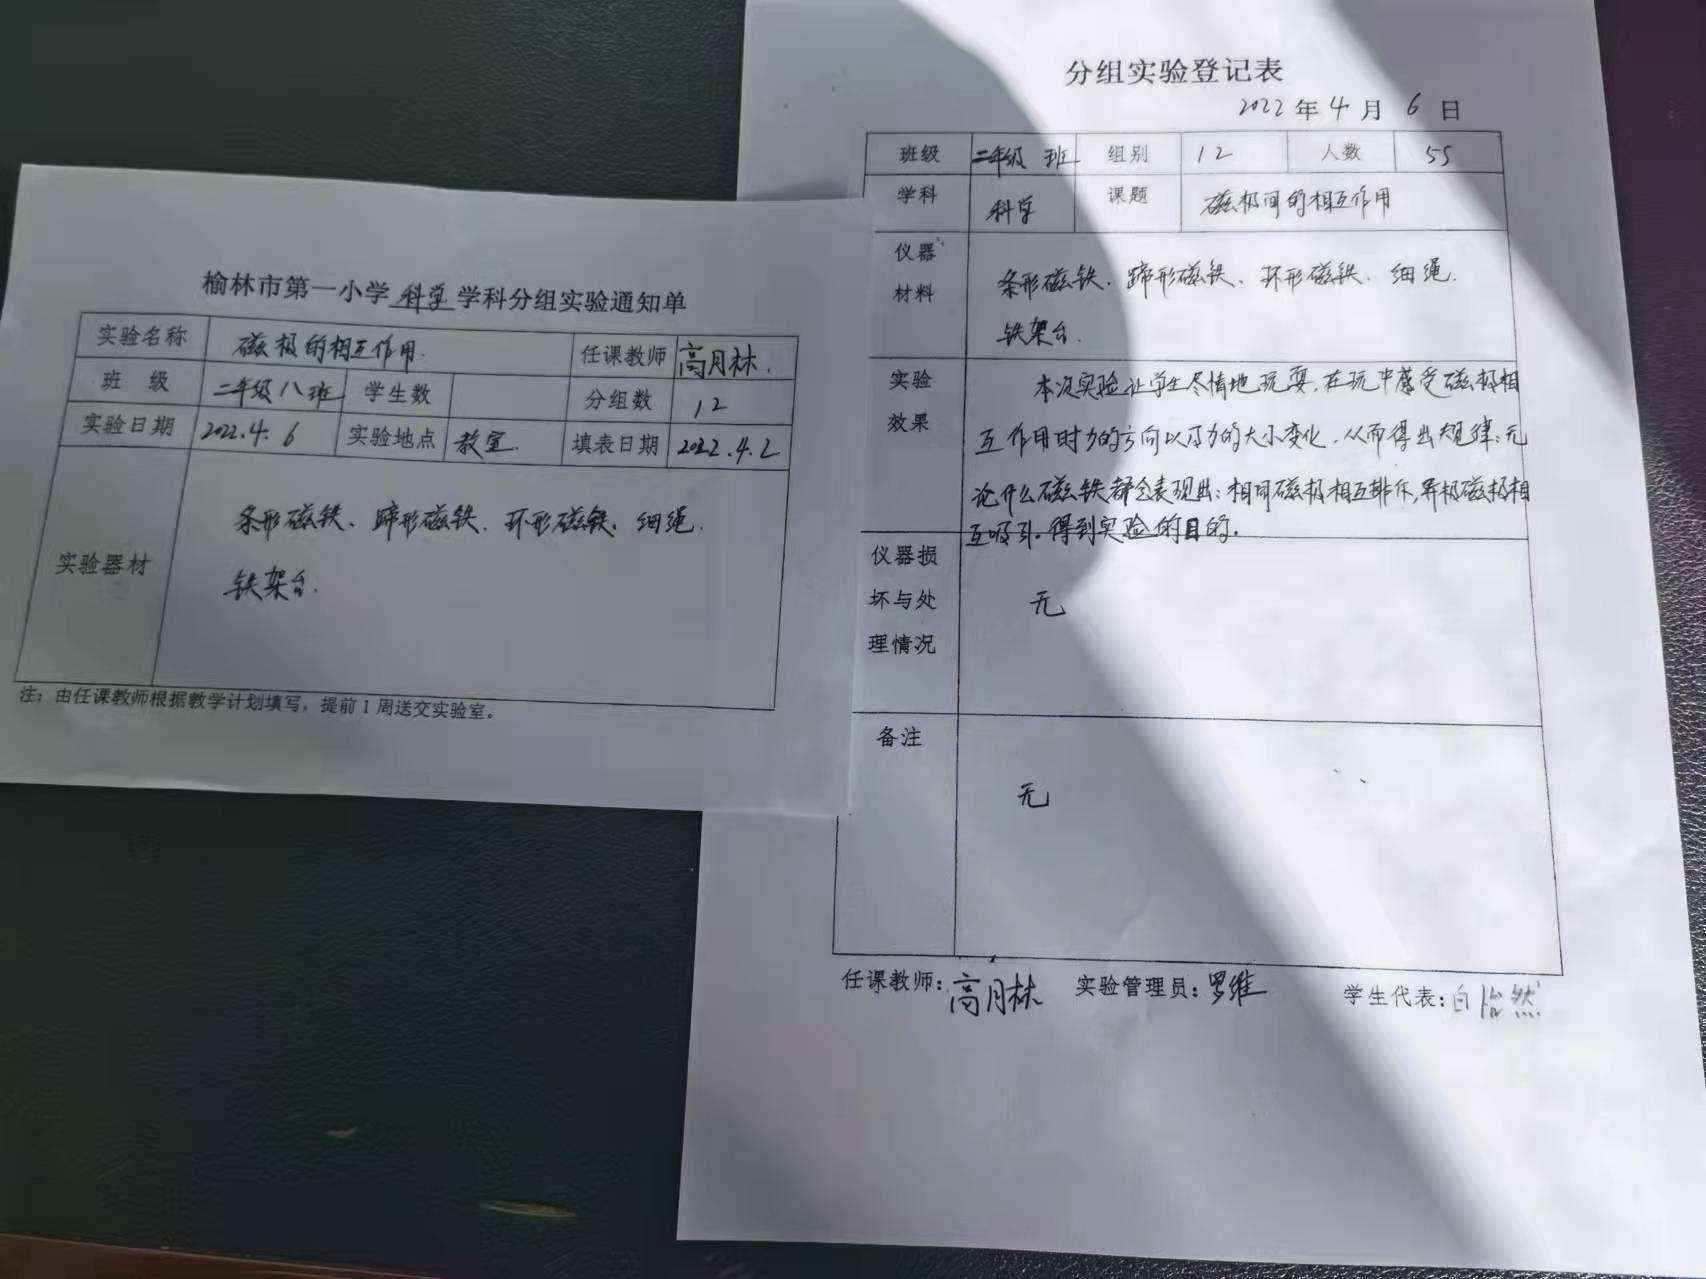 榆林市第一小学 科学 学科分组实验通知单
实验名称 磁极的相互作用. 任课教师 高月林.
班 级 二年级八班 学生数 分组数 12
实验日期 2022.4.6 实验地点 教室. 填表日期 2022.4.2
实验器材
条形磁铁、蹄形磁铁、环形磁铁、细绳.
铁架台.
注：由任课教师根据教学计划填写，提前1周送交实验室。
分组实验登记表
2022年4月6日
班级 二年级 班 组别 12 人数 55
学科 科学 课题 磁极间的相互作用
仪器
材料
条形磁铁、蹄形磁铁、环形磁铁、细绳.
铁架台.
实验
效果
本次实验让学生尽情地玩耍,在玩中感受磁极相
互作用时力的方向以及力的大小变化,从而得出规律:无
论什么磁铁都会表现出:相同磁极相互排斥,异极磁极相
互吸引。得到实验的目的.
仪器损
坏与处
理情况
无
备注
无
任课教师：高月林 实验管理员：罗维 学生代表：白怡然